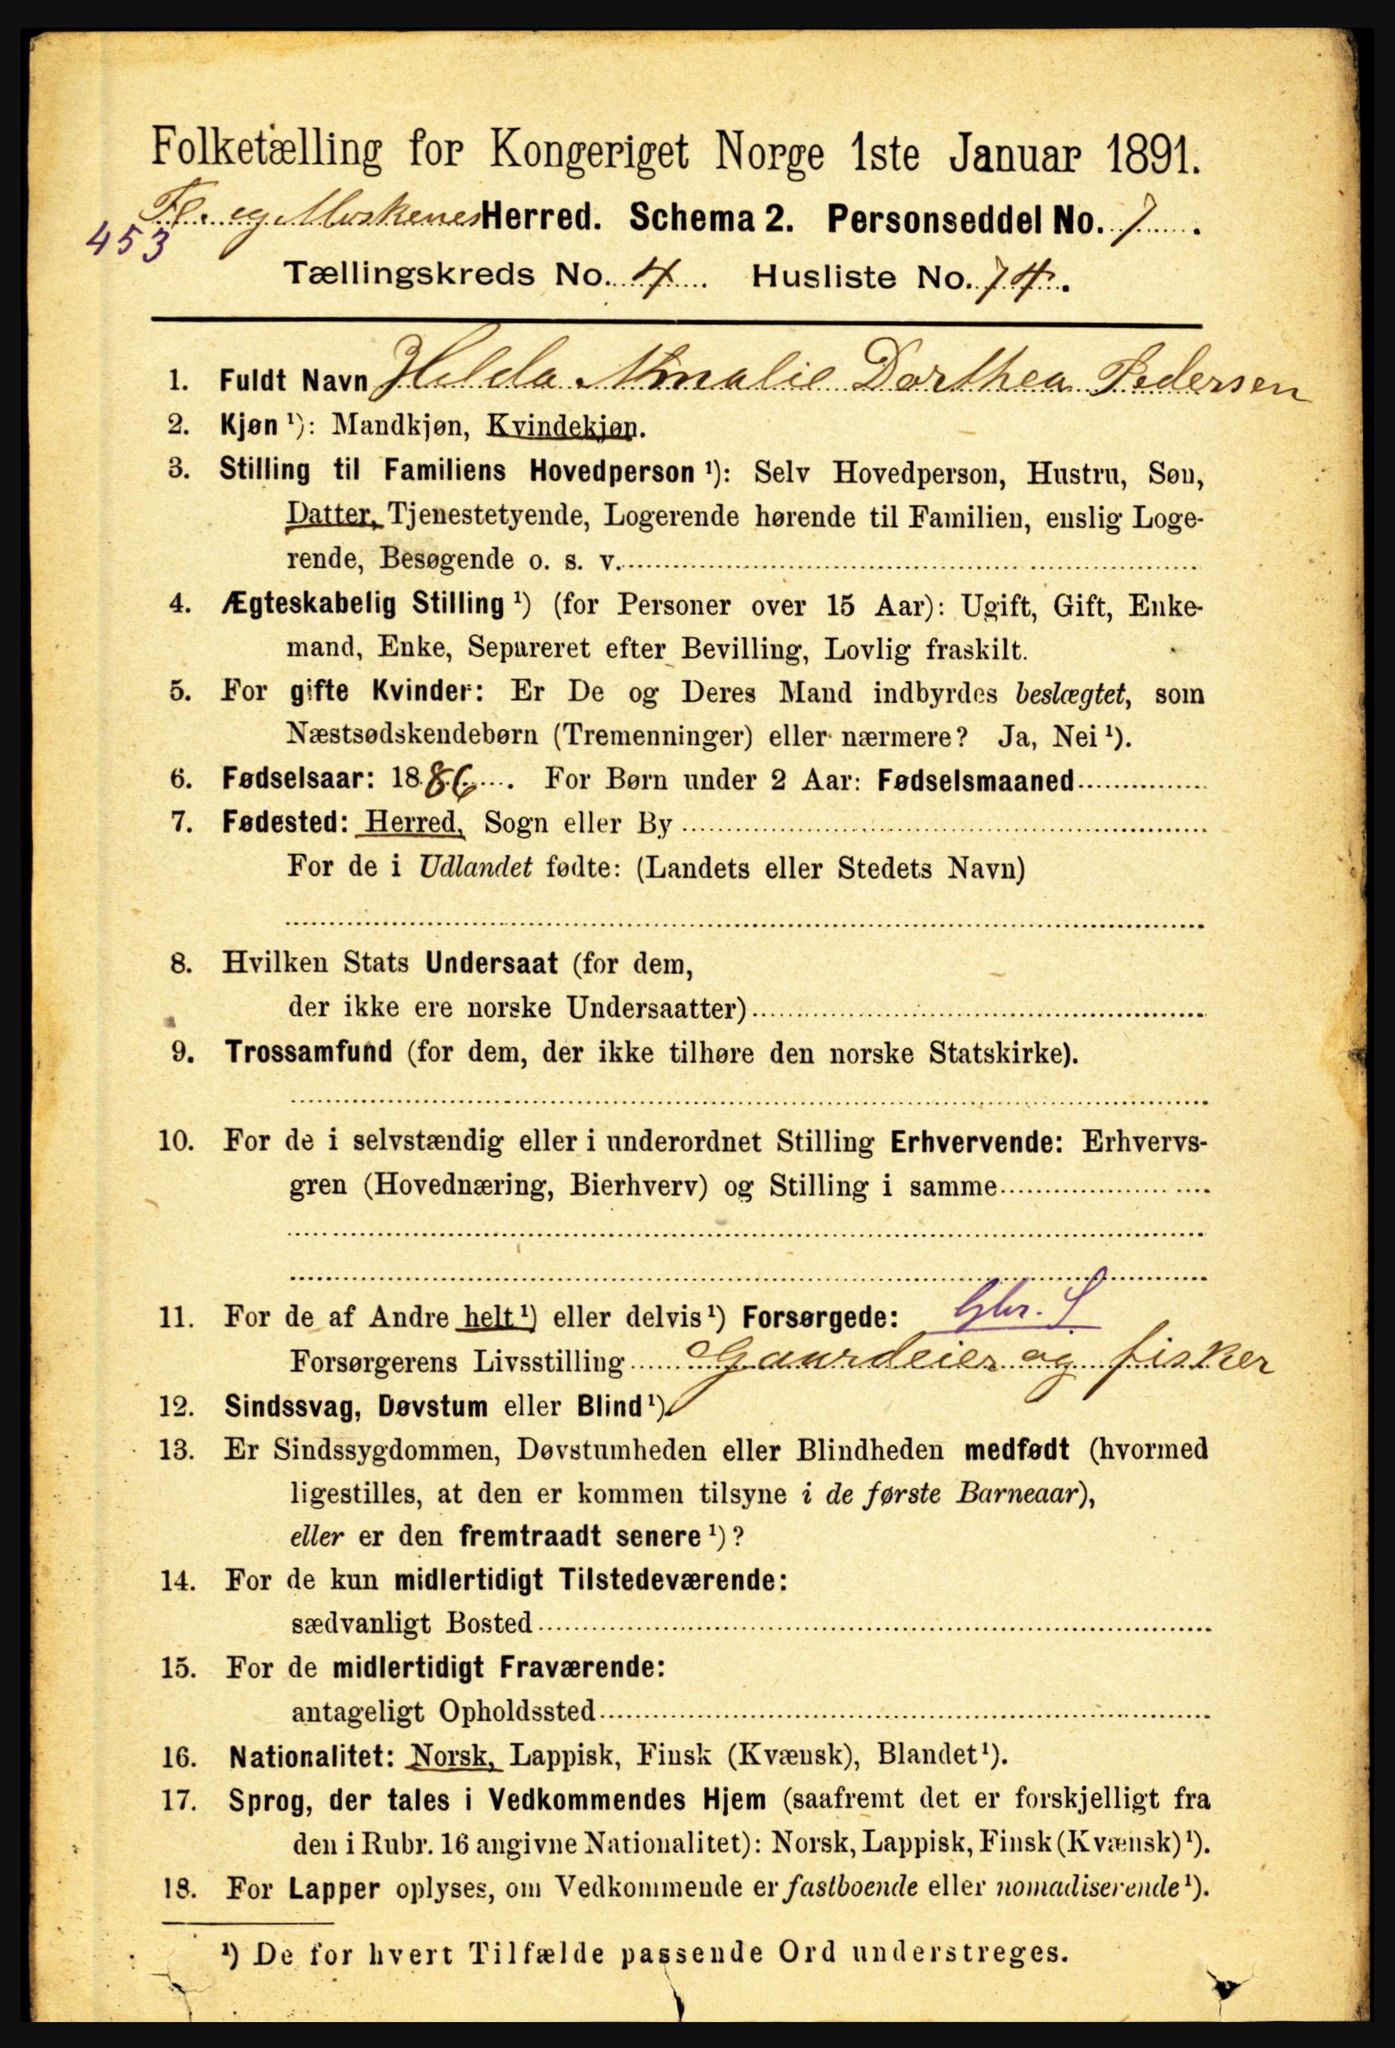 Folketælling for Kongeriget Norge 1ste Januar 1891.
Fl. og Moskenes Herred. Schema 2. Personseddel No. 7.
453
Tællingskreds No. 4. Husliste No. 74.
1. Fuldt Navn Hilda Amalie Dorthea Pedersen
2. Kjøn ¹): Mandkjøn, Kvindekjøn.
3. Stilling til Familiens Hovedperson ¹): Selv Hovedperson, Hustru, Søn,
Datter, Tjenestetyende, Logerende hørende til Familien, enslig Loge-
rende, Besøgende o. s. v.
4. Ægteskabelig Stilling ¹) (for Personer over 15 Aar): Ugift, Gift, Enke-
mand, Enke, Separeret efter Bevilling, Lovlig fraskilt.
5. For gifte Kvinder: Er De og Deres Mand indbyrdes beslægtet, som
Næstsødskendebørn (Tremenninger) eller nærmere? Ja, Nei ¹).
6. Fødselsaar: 1886. For Børn under 2 Aar: Fødselsmaaned
7. Fødested: Herred, Sogn eller By
For de i Udlandet fødte: (Landets eller Stedets Navn)
8. Hvilken Stats Undersaat (for dem,
der ikke ere norske Undersaatter)
9. Trossamfund (for dem, der ikke tilhøre den norske Statskirke).
10. For de i selvstændig eller i underordnet Stilling Erhvervende: Erhvervs-
gren (Hovednæring, Bierhverv) og Stilling i samme
11. For de af Andre helt ¹) eller delvis ¹) Forsørgede: Gbr. S
Forsørgerens Livsstilling Gaardeier og fisker
12. Sindssvag, Døvstum eller Blind ¹).
13. Er Sindssygdommen, Døvstumheden eller Blindheden medfødt (hvormed
ligestilles, at den er kommen tilsyne i de første Barneaar),
eller er den fremtraadt senere ¹)?
14. For de kun midlertidigt Tilstedeværende:
sædvanligt Bosted
15. For de midlertidigt Fraværende:
antageligt Opholdssted
16. Nationalitet: Norsk, Lappisk, Finsk (Kvænsk), Blandet ¹).
17. Sprog, der tales i Vedkommendes Hjem (saafremt det er forskjelligt fra
den i Rubr. 16 angivne Nationalitet): Norsk, Lappisk, Finsk (Kvænsk) ¹).
18. For Lapper oplyses, om Vedkommende er fastboende eller nomadiserende ¹).
¹) De for hvert Tilfælde passende Ord understreges.